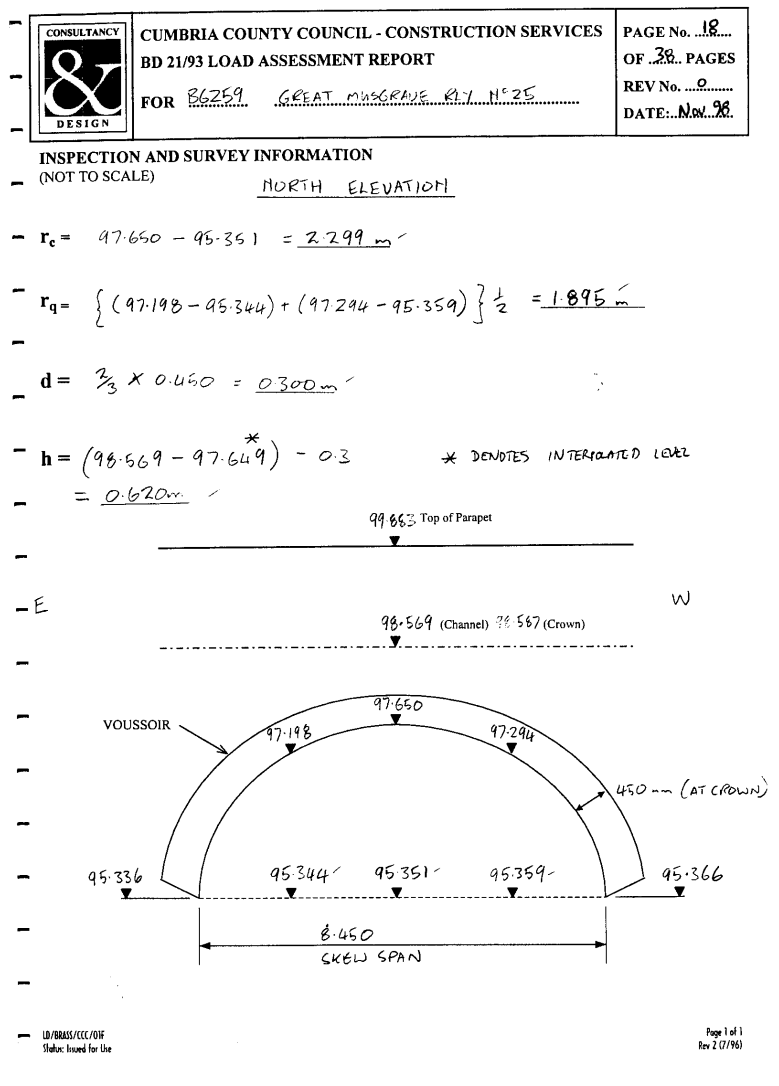 CONSULTANCY
&
DESIGN
CUMBRIA COUNTY COUNCIL - CONSTRUCTION SERVICES
BD 21/93 LOAD ASSESSMENT REPORT
FOR B6259 GREAT MUSGRAVE RLY Nº25
PAGE No. 18
OF 38 PAGES
REV No. 0
DATE: Nov 98
INSPECTION AND SURVEY INFORMATION
(NOT TO SCALE)
NORTH ELEVATION
rc = 97.650 - 95.351 = 2.299 m
rq = {(97.198 - 95.344) + (97.294 - 95.359)} ½ = 1.895 m
d = ⅔ × 0.450 = 0.300m
h = (98.569 - 97.649*) - 0.3
* DENOTES INTERPOLATED LEVEL
= 0.620m.
99.883 Top of Parapet
E W
98.569 (Channel) 98.587 (Crown)
97.650
VOUSSOIR
97.198 97.294
450 mm (AT CROWN)
95.336 95.344 95.351 95.359 95.366
8.450
SKEW SPAN
LD/BRASS/CCC/01F
Status: Issued for Use
Page 1 of 1
Rev 2 (7/96)